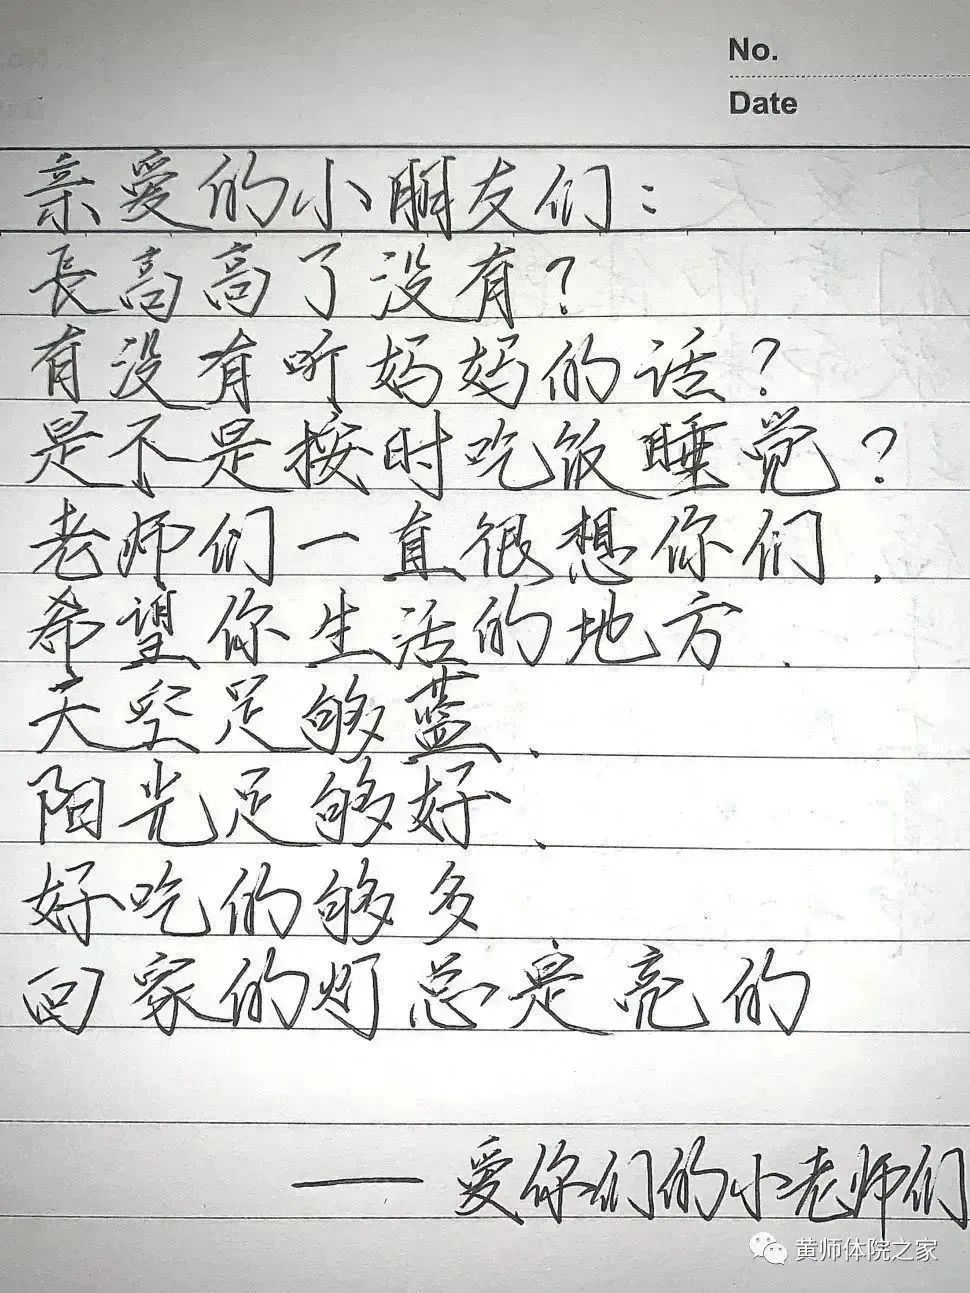 No.
Date
亲爱的小朋友们：
長高高了没有？
有没有听妈妈的话？
是不是按时吃饭睡觉？
老师们一直很想你们.
希望你生活的地方.
天空足够蓝、
阳光足够好、
好吃的够多
回家的灯总是亮的
——爱你们的小老师们
黄师体院之家